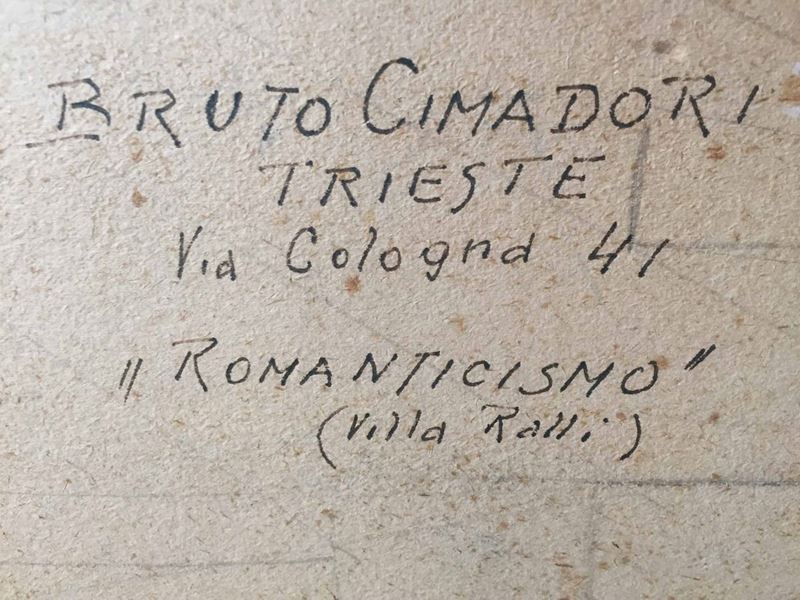 BRUTO CIMADORI
TRIESTE
Via Cologna 41
„ROMANTICISMO”
(Villa Ralli)